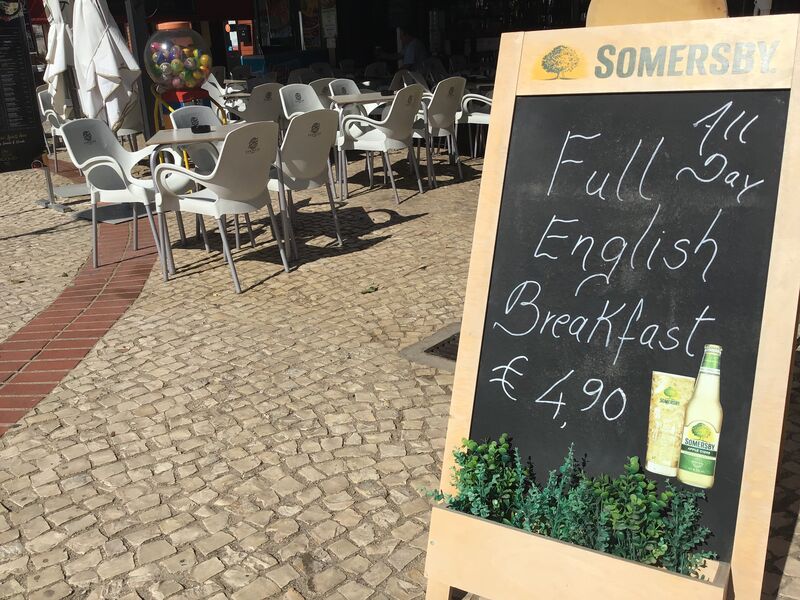 SOMERSBY
All
Day
Full
English
Breakfast
€ 4,90
SOMERSBY
SOMERSBY
APPLE CIDER